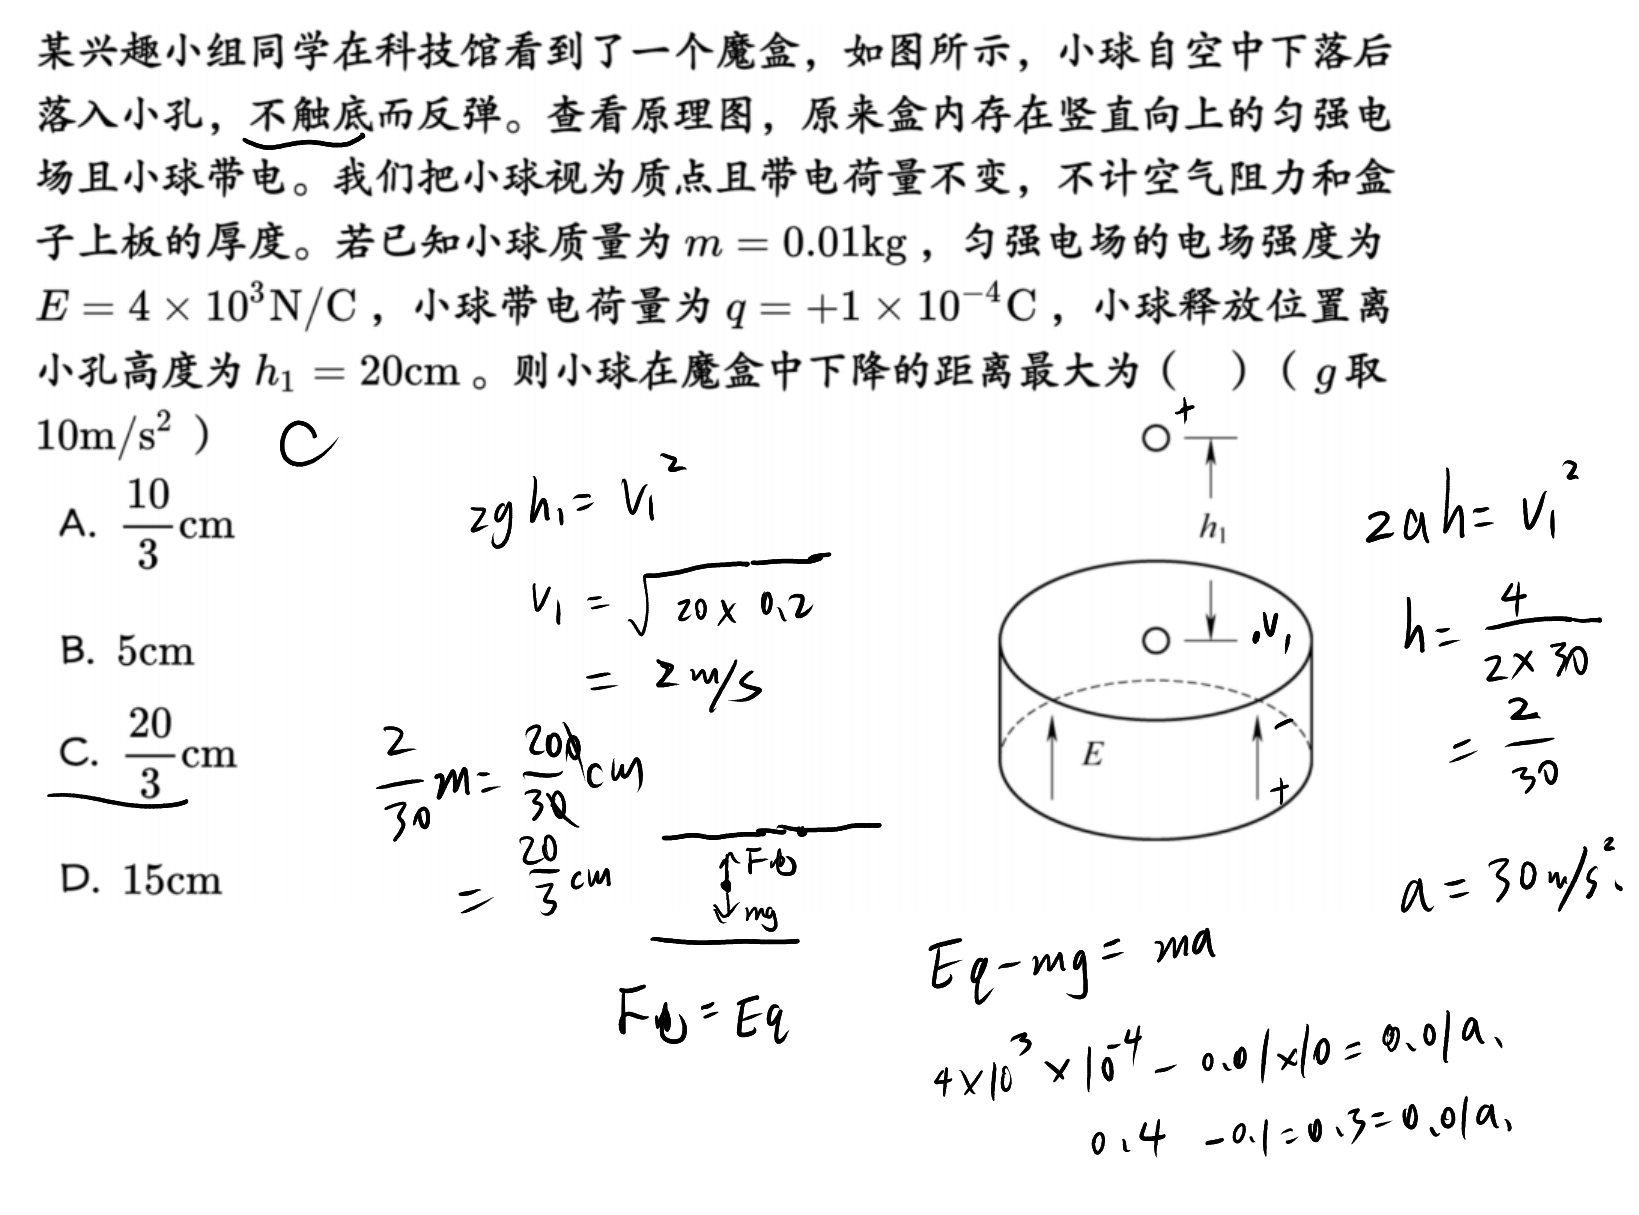 某兴趣小组同学在科技馆看到了一个魔盒，如图所示，小球自空中下落后
落入小孔，不触底而反弹。查看原理图，原来盒内存在竖直向上的匀强电
场且小球带电。我们把小球视为质点且带电荷量不变，不计空气阻力和盒
子上板的厚度。若已知小球质量为 m = 0.01kg ，匀强电场的电场强度为
E = 4 × 10³N/C ，小球带电荷量为 q = +1 × 10⁻⁴C ，小球释放位置离
小孔高度为 h₁ = 20cm 。则小球在魔盒中下降的距离最大为（ ）（ g 取
10m/s² ）
C
A. 10/3 cm
B. 5cm
C. 20/3 cm
D. 15cm
2gh₁ = v₁²
v₁ = √(20 × 0.2)
= 2m/s
2/30 m = 200/30 cm
= 20/3 cm
F电
mg
F电 = Eq
+
h₁
.v₁
E
-
+
2ah = v₁²
h = 4/(2×30)
= 2/30
a = 30m/s².
Eq - mg = ma
4×10³ × 10⁻⁴ - 0.01×10 = 0.01a.
0.4 - 0.1 = 0.3 = 0.01a.